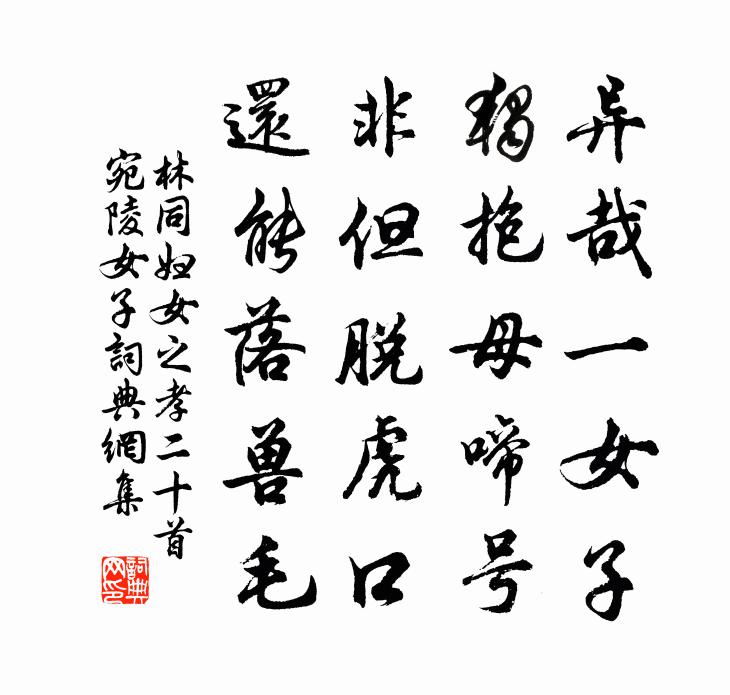 异哉一女子
独抱母啼号
非但脱虎口
還能落兽毛
林同妇女之孝二十首
宛陵女子詞典網集
詞典网印